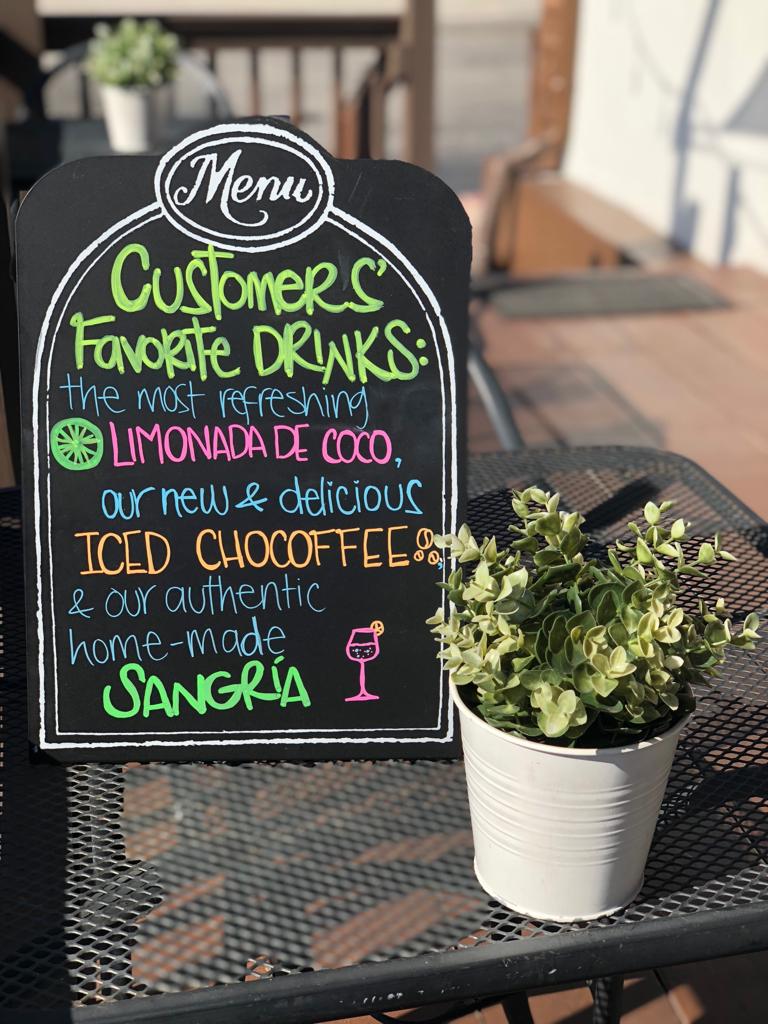 Menu
CUSTOMERS'
FAVORITE DRINKS:
the most refreshing
LIMONADA DE COCO,
our new & delicious
ICED CHOCOFFEE,
& our authentic
home-made
SANGRÍA